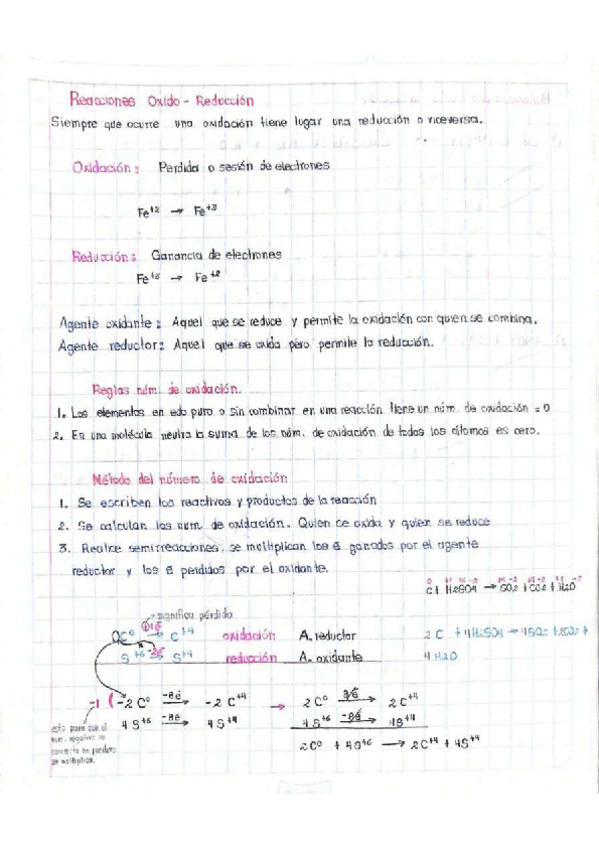 Reacciones Oxido - Reducción
Siempre que ocurre una oxidación tiene lugar una reducción o viceversa.
Oxidación: Perdida o sesión de electrones
Fe⁺² → Fe⁺³
Reducción: Ganancia de electrones
Fe⁺³ → Fe⁺²
Agente oxidante: Aquel que se reduce y permite la oxidación con quien se combina.
Agente reductor: Aquel que se oxida pero permite la reducción.
Reglas núm. de oxidación.
1. Los elementos en edo puro o sin combinar en una reacción tiene un núm. de oxidación = 0
2. En una molécula neutra la suma de los núm. de oxidación de todos los átomos es cero.
Método del número de oxidación
1. Se escriben los reactivos y productos de la reacción
2. Se calculan los num. de oxidación. Quien se oxida y quien se reduce
3. Realice semirreacciones, se multiplican los ē ganados por el agente
reductor y los ē perdidos por el oxidante.
C + H₂SO₄ → SO₂ + CO₂ + H₂O
significa pérdido
C⁰ → C⁺⁴ oxidación A. reductor
2 C + 4H₂SO₄ → 4SO₂ + 2CO₂ +
S⁺⁶ → S⁺⁴ reducción A. oxidante
4 H₂O
-1 (-2 C⁰ -8ē → -2 C⁺⁴ → 2 C⁰ 8ē → 2 C⁺⁴
4 S⁺⁶ -8ē → 4 S⁺⁴ 4 S⁺⁶ -8ē → 4S⁺⁴
esto para que el
num. negativo se
convierta en positivo
se multiplica.
2C⁰ + 4S⁺⁶ → 2C⁺⁴ + 4S⁺⁴